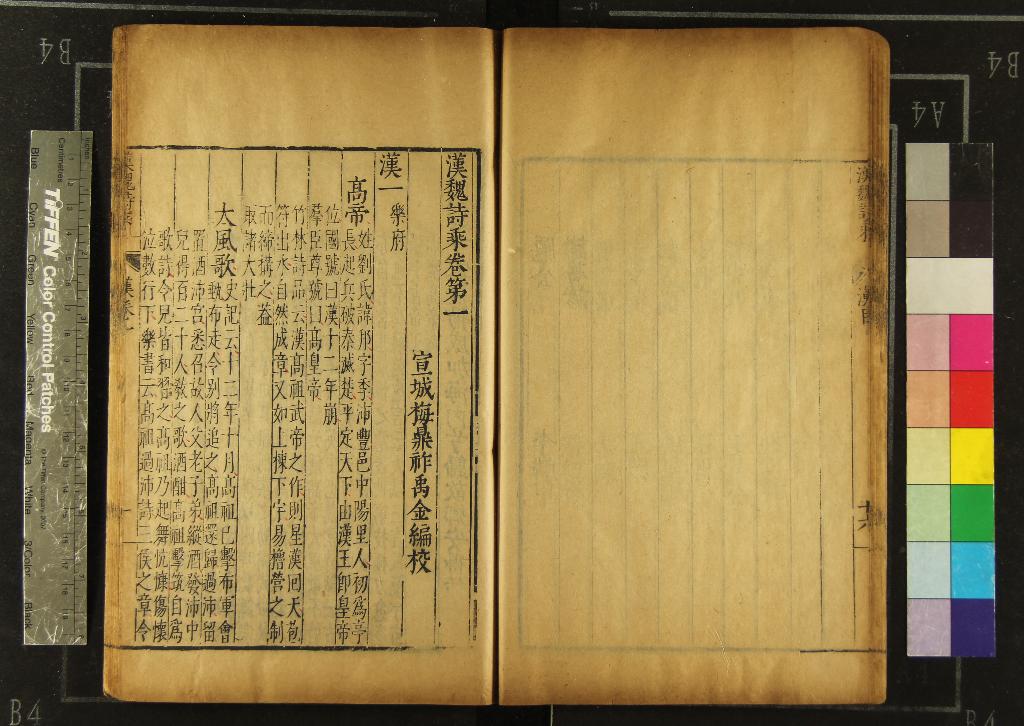 漢魏詩乘卷第一
宣城梅鼎祚禹金編校
漢一
樂府
高帝
姓劉氏諱邦字季沛豐邑中陽里人初為亭
長起兵破秦滅楚平定天下由漢王即皇帝
位國號曰漢十二年崩
羣臣尊號曰高皇帝
竹林詩品云漢高祖武帝之作則星漢回天苞
符出水自然成章又如上棟下宇易檜營之制
而締構之益
取諸大壯
大風歌
史記云十二年十月高祖已擊布軍會
甀布走令別將追之高祖還歸過沛留
置酒沛宮悉召故人父老子弟縱酒發沛中
兒得百二十人敎之歌酒酣高祖擊筑自為
歌詩令兒皆和習之高祖乃起舞忼慷傷懷
泣數行下樂書云高祖過沛詩三侯之章令
漢魏詩乘
漢卷一
一
漢魏詩乘
十六
B4
B4
A4
B4
B4
TIFFEN Color Control Patches
Centimetres
Inches
Blue
Cyan
Green
Yellow
Red
Magenta
White
3/Color
Black